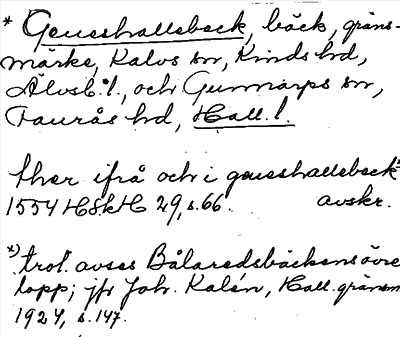 * Geusshallebeck, bäck, gräns-
märke, Kalvs sn, Kinds hd,
Älvsb. l., och Gunnarps sn,
Faurås hd, Hall. l.
ther ifrå och i geusshallebeck
1554 HSkH 29, s. 66. avskr.
x) trol. avses Bålaredsbäckens övre
lopp; jfr Joh. Kalén, Hall. gränsm
1924, s. 147.